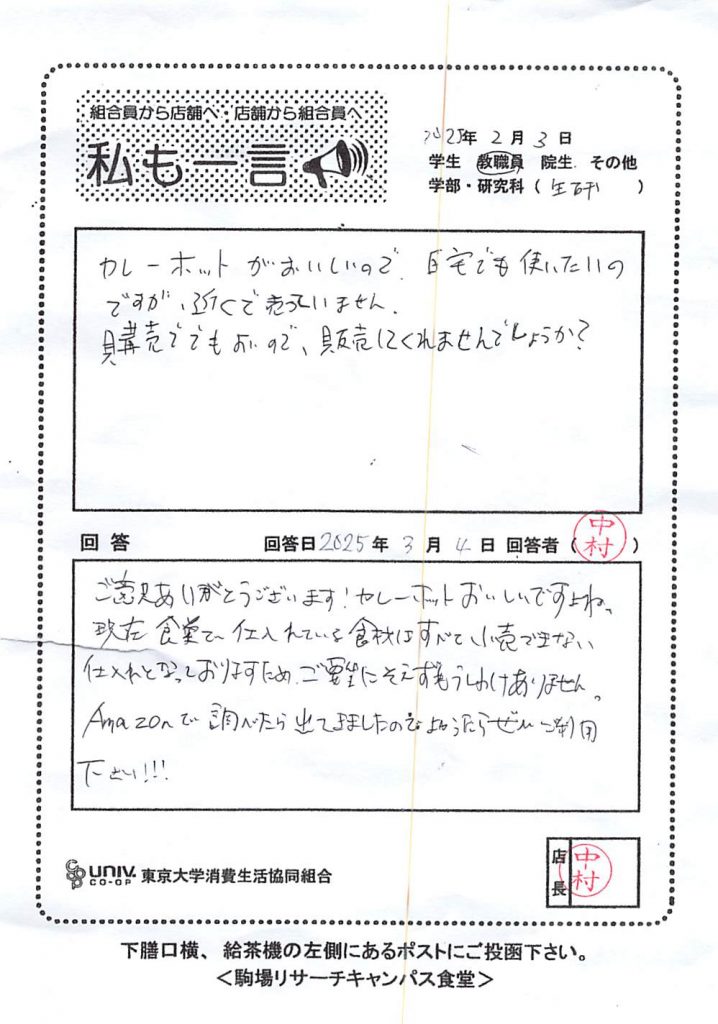 組合員から店舗へ 店舗から組合員へ
私も一言
2025年 2月 3日
学生 教職員 院生 その他
学部・研究科（ 生研 ）
カレーホットがおいしいので、自宅でも使いたいの
ですが、近くで売っていません。
購売ででもよいので、販売してくれませんでしょうか?
回答 回答日2025年 3月 4日 回答者（中村）
ご意見ありがとうございます!カレーホットおいしいですよね。
現在食堂で仕入れている食材はすべて小売できない
仕入れとなっておりますため、ご要望にそえずもうしわけありません。
Amazonで調べたら出てきましたのでよかったらぜひご利用
下さい!!!
UNIV. CO-OP 東京大学消費生活協同組合
店長 中村
下膳口横、給茶機の左側にあるポストにご投函下さい。
＜駒場リサーチキャンパス食堂＞